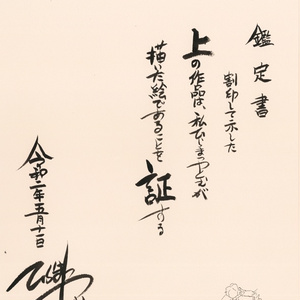 鑑定書
割印して示した
上の作品は、私ひじまつとむが
描いた絵であることを
証する
令和二年五月十一日